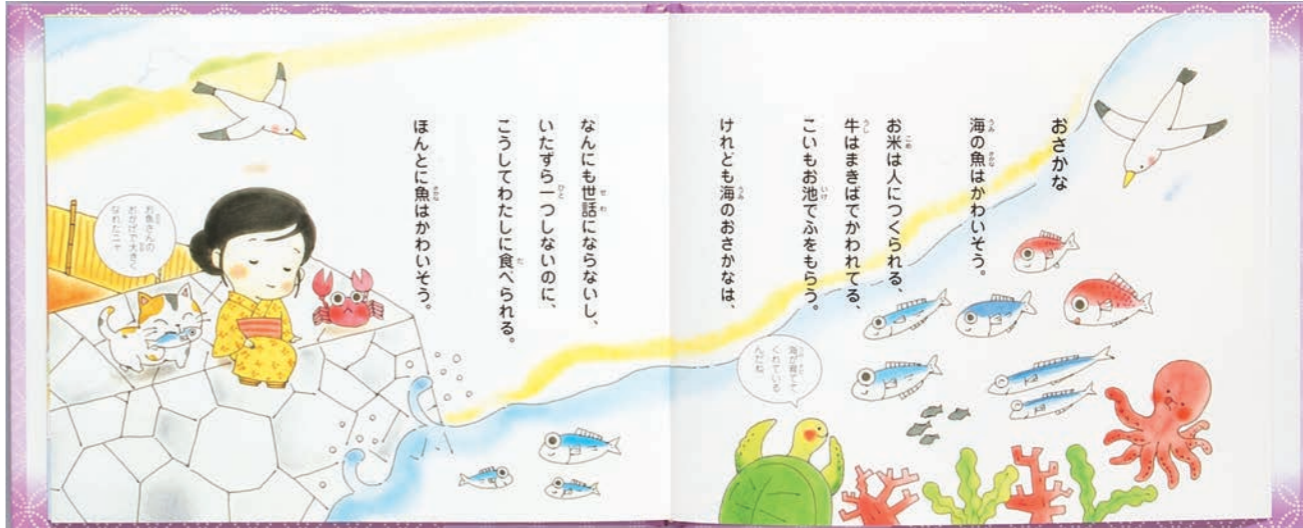 おさかな
海の魚はかわいそう。
お米は人につくられる、
牛はまきばでかわれてる、
こいもお池でふをもらう。
けれども海のおさかなは、
なんにも世話にならないし、
いたずら一つしないのに、
こうしてわたしに食べられる。
ほんとに魚はかわいそう。
海が育てて
くれている
んだね
お魚さんの
おかげで大きく
なれたニャ